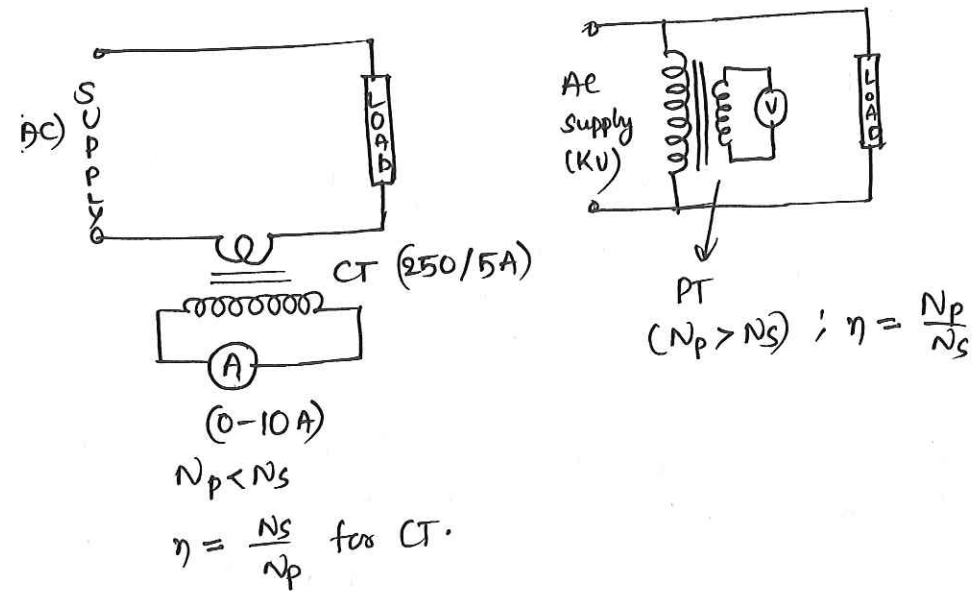 AC)
SUPPLY
LOAD
CT (250/5A)
A
(0-10A)
Np<Ns
η = Ns/Np for CT.
AC
Supply
(KV)
V
LOAD
PT
(Np > Ns) ; η = Np/Ns